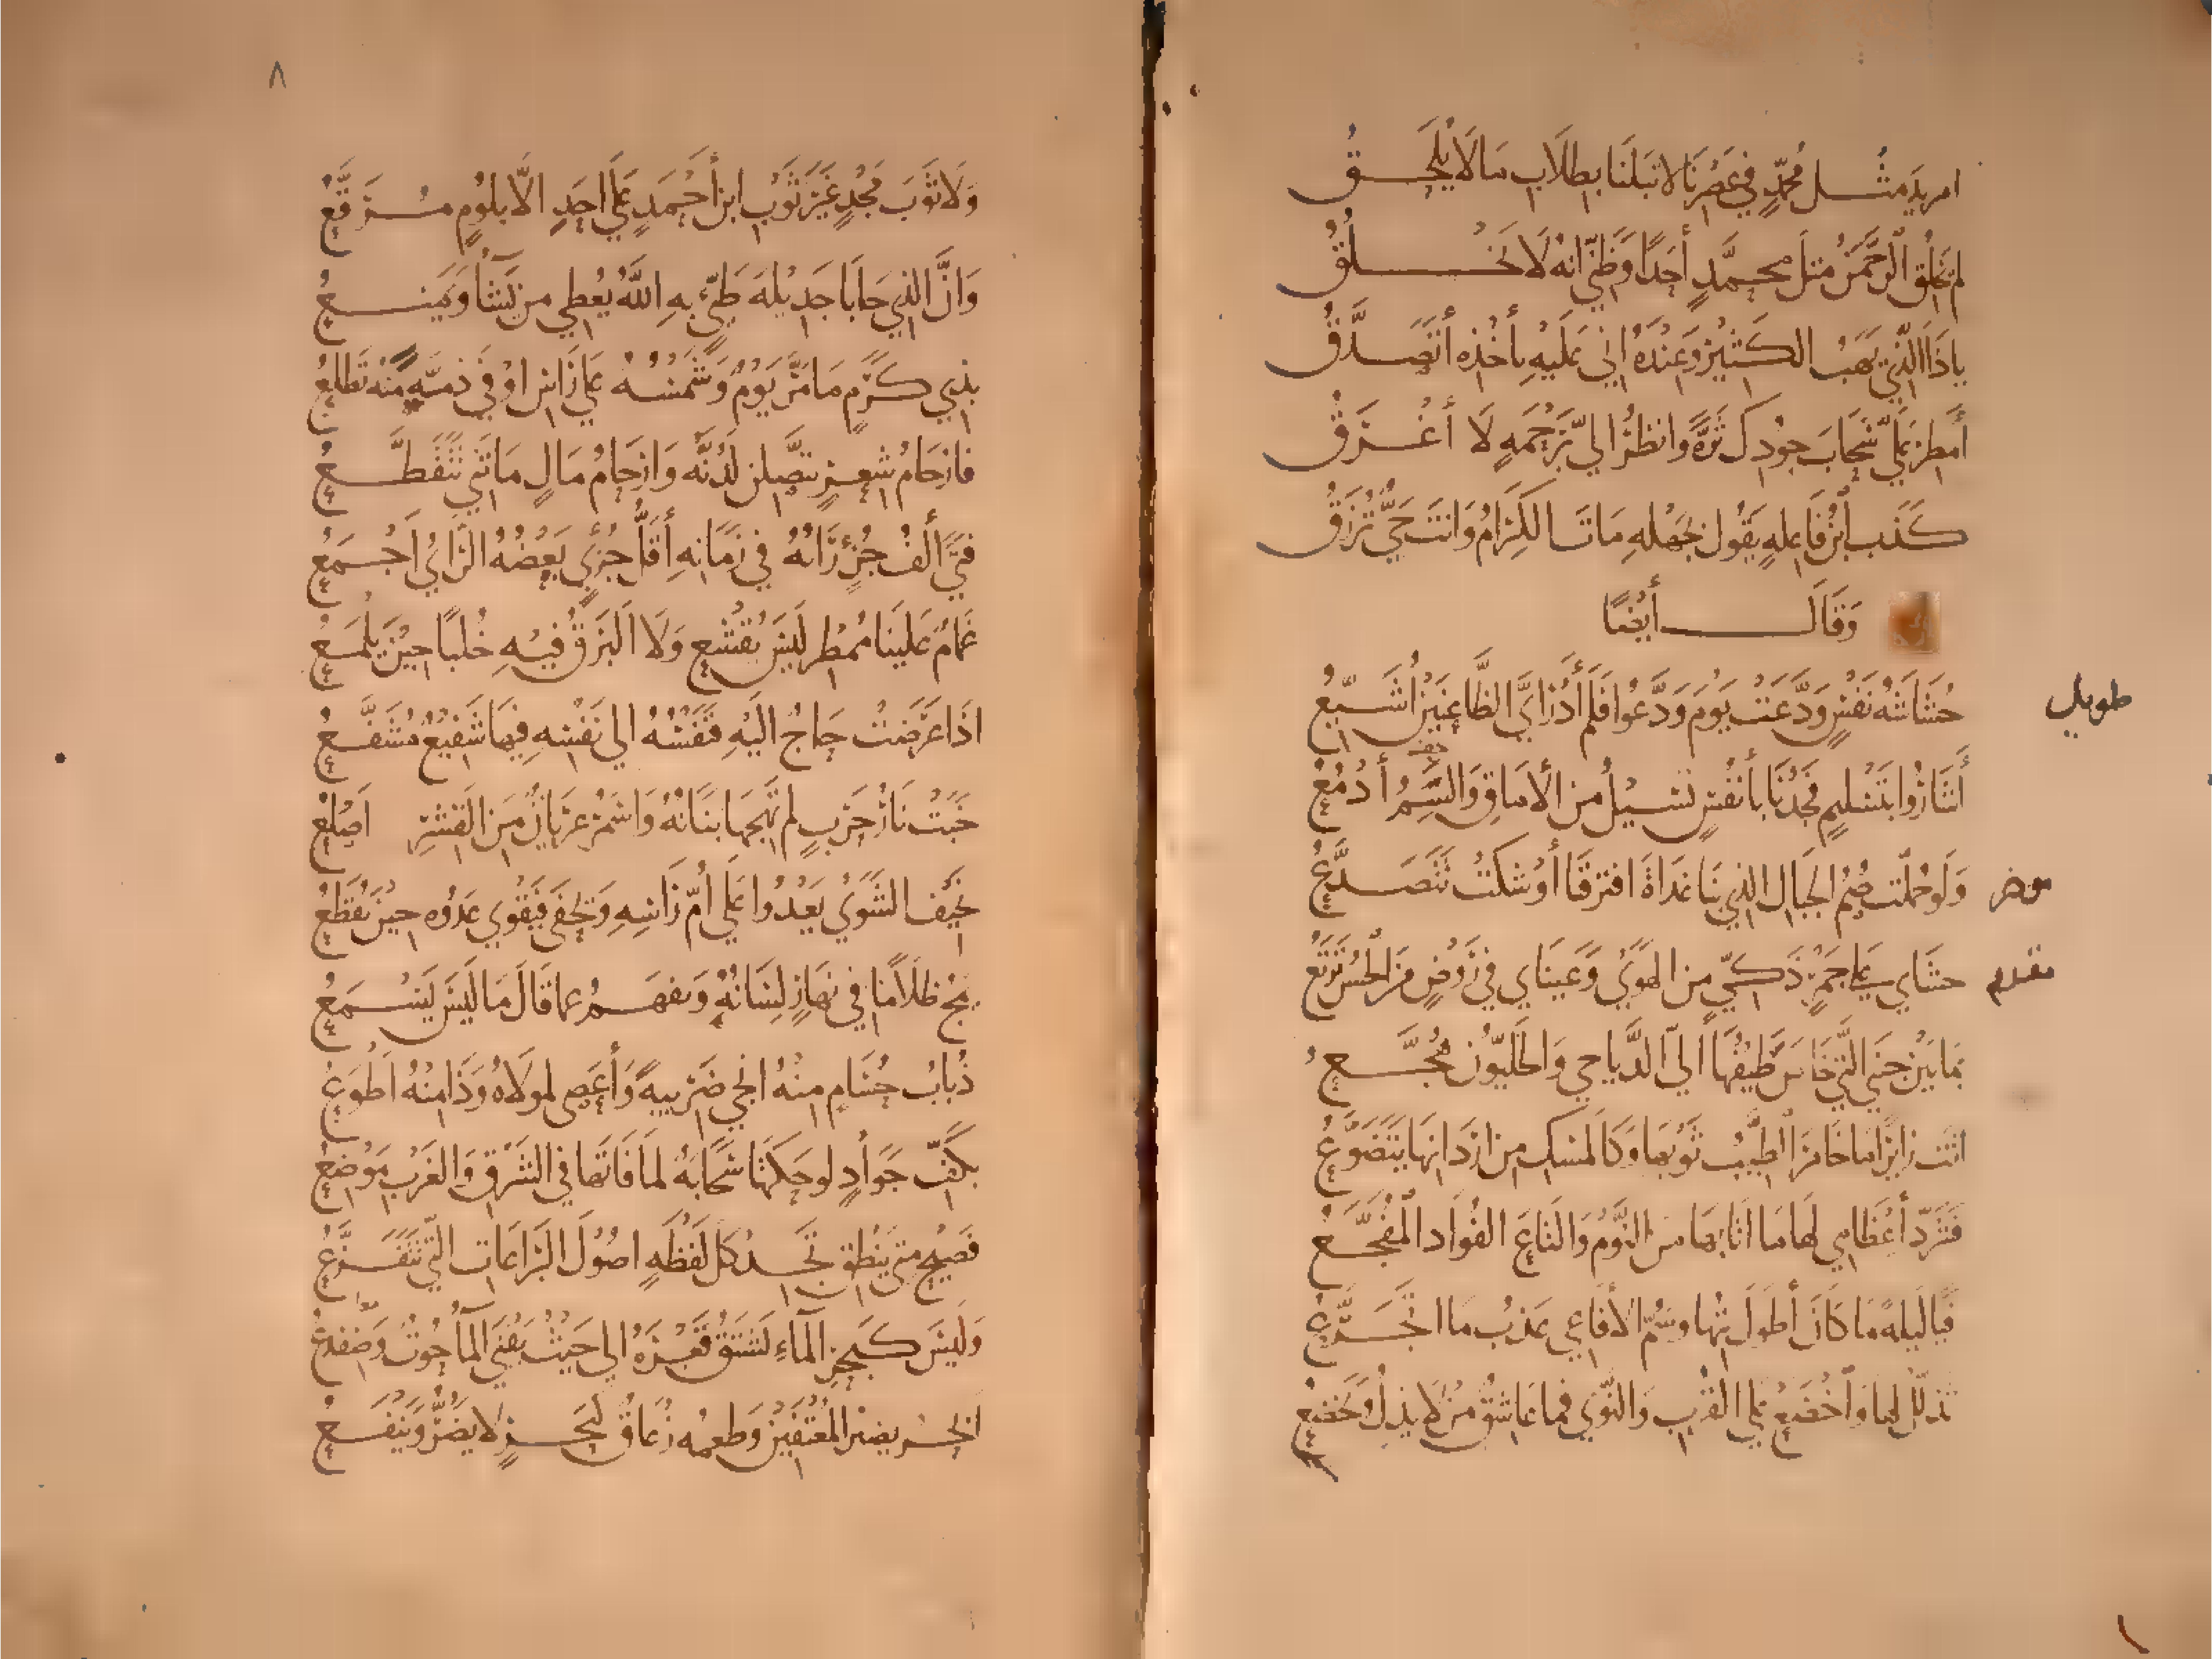 امريد مثل محمّدٍ في عَصْرِنَا لا تبلنَا بطلَاب ما لَا يُلْحَقُ
لم يخلق الرّحمنُ مثلَ محمّدٍ أحَدًا وَظنّي انه لَا يَخلُقُ
ياذَا الّذي يَهَبُ الكَثيرَ وَعِنْدَهُ اني عَلَيهِ بأخذه أتَصَدَّقُ
أمطِر عَلَيّ سَحَابَ جودِكَ ثَرَّةً وانظُر اليّ بِرَحْمَةٍ لَا أغْرَقُ
كَذَب ابْنُ فَاعِلَةٍ يَقُولُ بجَهْلهِ مَاتَ الكِرَامُ وَانتَ حَيٌّ تُرْزَقُ
وَقَالَ أيْضًا
طويل
حُشَاشَةُ نَفْسٍ وَدَّعَتْ يَوْمَ وَدَّعُوا فَلَم أدْرِ ايَّ الظَّاعِنَيْنِ أُشَيّعُ
أشَارُوا بتَسْليمٍ فَجُدْنَا بأنفُسٍ تَسيْلُ من الأمَاقِ وَالسّمُ أدْمُعُ
وَلَو حُمّلت صُمُّ الجبَال الذي بنَا غَدَاةَ افترقنَا أوْشكَتْ تَتَصَدَّعُ
مقدم
حشَاي على جَمْرٍ ذَكيّ من الهَوَي وَعَينَاي في رَوْضٍ مَن الحُسْن تَرْتَع
بمَا بَيْنَ جنبَي الّتي خَاضَ طَيْفُهَا اليَ الدَّيَاجي وَالخَليّون هُجَّعُ
اتَت زايرًا ما خَامَرَ الطّيبُ ثَوْبهَا وَكَالمسك من ارْدَانهَا يَتَضَوَّعُ
فَشَرّدَ أعْظَامي لهَا مَا اتَا بهَا من النَّوْم وَالتَاعَ الفُوَاد المُفَجَّعُ
فيَا ليلةً مَا كَانَ أطْوَلَ بتُّها وسُمُّ الأفَاعي عَذبُ مَا اتجَرَّعُ
تذَلّل لهَا وَاخْضَعْ علي القُرْب وَالنّوَي فما عَاشقٌ مَنْ لَا يذِلُّ وَيَخضَعُ
٨
وَلَا ثَوْبَ مَجْدٍ غَيْرَ ثَوْب ابن أحْمَدٍ عَلَي احَدٍ الَّا بلُوْمٍ مُرَقَّعُ
وَانَّ الذي حَابَا جَدِيْلَةَ طَيّئٍ بهِ اللّهُ يُعْطي من يَشَأُ وَيَمنَعُ
بذي كَرَمٍ مَا مَرَّ يَوْمٌ وَشَمْسُهُ علي رَاس اوْفَي ذمّةً منْه تَطلعُ
فارْحَامُ شعرٍ يتَّصِلنَ لَدُنَّهُ وَارْحَامُ مَالٍ مَا تَني تَتَقَطَّعُ
فتيً ألفُ جُزْءٍ رَايُهُ في زَمَانهِ أقَلُّ جُزَيءٍ بَعْضُهُ الرَّايُ أجْمَعُ
غَمَامٌ عَلَينَا مُمطرٌ لَيسَ يُقشعُ وَلَا البَرْقُ فيْهِ خُلَّبًا حينَ يَلْمَعُ
اذَا عَرَضَتْ حَاجٌ اليْهِ فَنَفْسُهُ الي نَفْسهِ فيهَا شَفيْعٌ مُشَفَّعُ
خَبَتْ نَارُ حَرْبٍ لم تَهجهَا بَنَانُهُ وَاسْمَرُ عَرْيَانٌ مَن القشْرِ اَصْلعُ
نحيْف الشّوَي يَعْدُوا عَلَي أمّ رَاسهِ وَيَحفَي فَيَقْوي عَدْوُه حينَ يُقْطَعُ
يمجُّ ظلَامًا في نهَارٍ لسَانُهُ وَيفهَمُ عمّا قَالَ مَا ليْسَ يَسْمَعُ
ذُبَابُ حُسَامٍ منْهُ انجي ضَرْيبةً وَأعْصي لمولَاهُ وَذَا منْهُ اطْوَعُ
بكَفّ جَوَادٍ لو حَكتهَا سَحَابَةٌ لمَا فَاتَهَا في الشَّرْقِ وَالغَرْب مَوْضعُ
فَصيْح متي يَنْطق تَجد كلَّ لَفْظةٍ اصُوْلَ البَرَاعَات الّتي تَتَفَرَّعُ
وَلَيسَ كَبحرِ المَاءِ يَشتقُّ قَعْرَهُ الي حَيْثُ يَفْني المَآ حُوتٌ وَضفدَعُ
ابحرٌ يضرّ المُعْتَفيْنَ وَطعمُه زُعَاقٌ كبَحرٍ لَا يَضُرُّ وَيَنْفَعُ